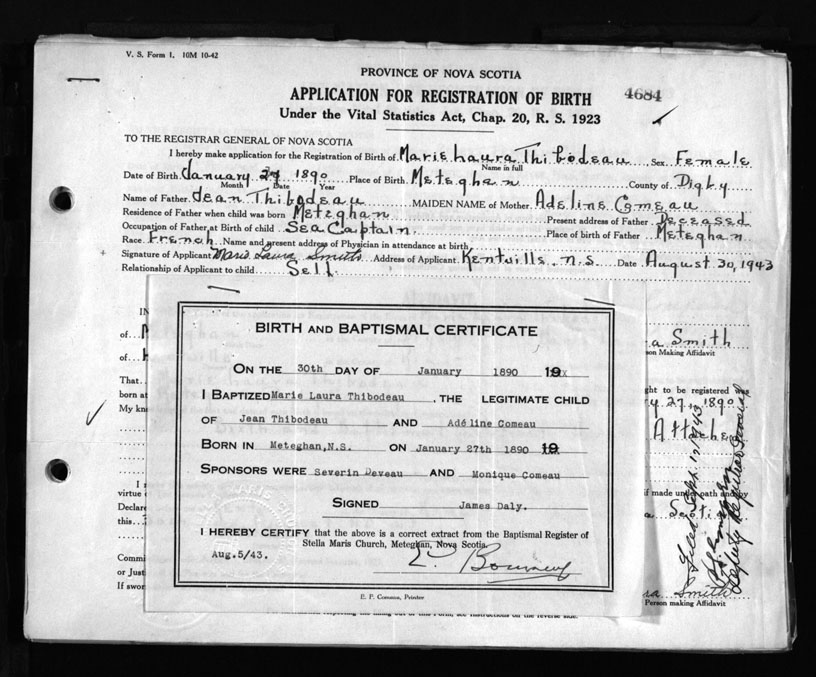 V. S. Form 1. 10M 10-42
PROVINCE OF NOVA SCOTIA
4684
APPLICATION FOR REGISTRATION OF BIRTH
Under the Vital Statistics Act, Chap. 20, R. S. 1923
TO THE REGISTRAR GENERAL OF NOVA SCOTIA
I hereby make application for the Registration of Birth of Marie Laura Thibodeau Sex Female
Name in full
Date of Birth January 27 1890 Place of Birth Meteghan County of Digby
Month Date Year
Name of Father Jean Thibodeau MAIDEN NAME of Mother Adeline Comeau
Residence of Father when child was born Meteghan Present address of Father Deceased
Occupation of Father at Birth of child Sea Captain Place of birth of Father Meteghan
Race French Name and present address of Physician in attendance at birth
Signature of Applicant Marie Laura Smith Address of Applicant Kentville, N.S. Date August 30, 1943
Relationship of Applicant to child Self
IN
of M a Smith
son Making Affidavit
of
That ght to be registered was
born at y 27, 1890
My kno Attach
BIRTH AND BAPTISMAL CERTIFICATE
ON THE 30th DAY OF January 1890 19x
I BAPTIZED Marie Laura Thibodeau, THE LEGITIMATE CHILD
OF Jean Thibodeau AND Adéline Comeau
BORN IN Meteghan, N.S. ON January 27th 1890 19
SPONSORS WERE Severin Deveau AND Monique Comeau
SIGNED James Daly.
I HEREBY CERTIFY that the above is a correct extract from the Baptismal Register of
Stella Maris Church, Meteghan, Nova Scotia.
Aug. 5/43.
E. P. Comeau, Printer
I
virtue if made under oath and by
Declare a Scotia
this
Commi
or Just
If swor ra Smith
Person making Affidavit
Filed Sept. 17/1943
Deputy Registrar General